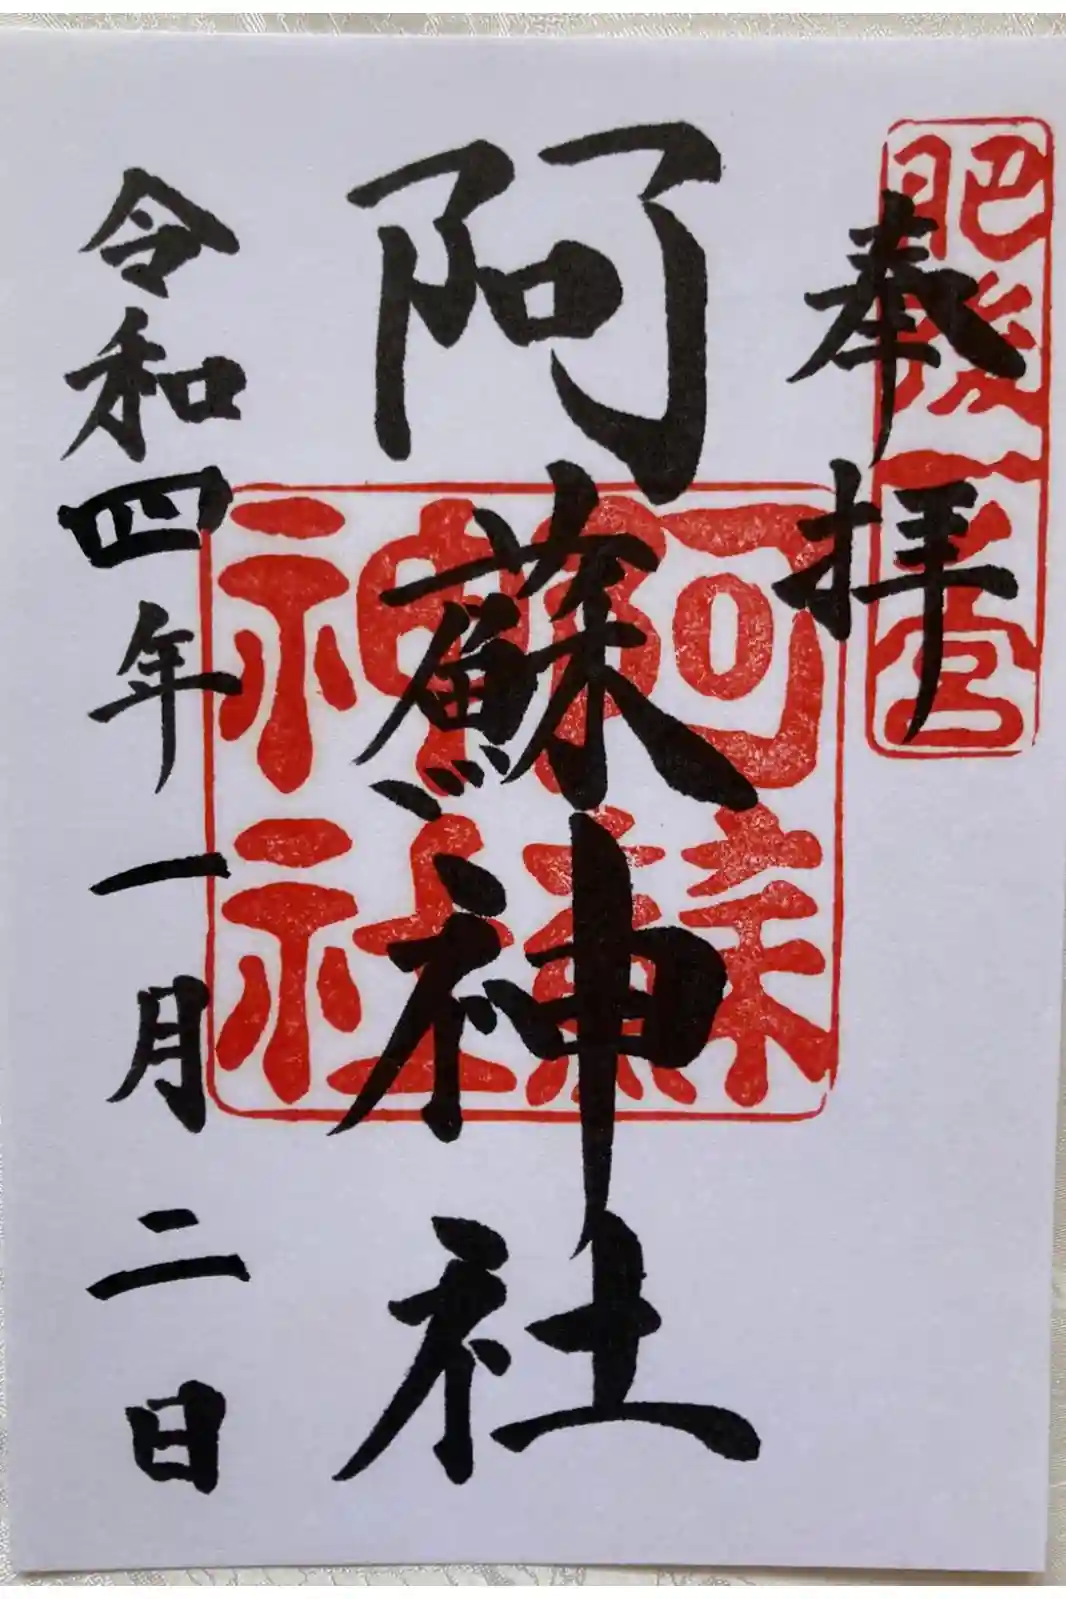 肥後一之宮
奉拝
阿蘇神社
阿蘇神社
令和四年一月二日